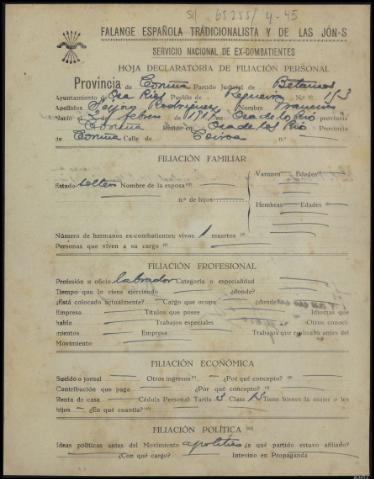 S/ 65255/ 4-45
FALANGE ESPAÑOLA TRADICIONALISTA Y DE LAS JÓN-S
SERVICIO NACIONAL DE EX-COMBATIENTES
HOJA DECLARATORIA DE FILIACIÓN PERSONAL
Provincia de Coruña Partido Judicial de Betanzos
Ayuntamiento de Oza Rios Pueblo de N.º 183
Apellidos Rodríguez Nombre
Nació el de 1917 en Oza de los Rio provincia
Coruña Reside en Oza de los Rio Provincia
de Coruña Calle de
FILIACIÓN FAMILIAR
Varones Edades
Estado soltero Nombre de la esposa
n.º de hijos
Hembras Edades
Número de hermanos ex-combatientes: vivos 1 muertos
Personas que viven a su cargo
FILIACIÓN PROFESIONAL
Profesión u oficio labrador Categoría o especialidad
Tiempo que lo viene ejerciendo ¿dónde?
¿Está colocado actualmente? Cargo que ocupa ¿dónde?
Empresa Títulos que posee Idiomas que
habla Trabajos especiales Otros conoci-
mientos Empresa Trabajos que realizaba antes del
Movimiento
FILIACIÓN ECONÓMICA
Sueldo o jornal Otros ingresos ¿Por qué concepto?
Contribución que paga ¿Por qué concepto?
Renta de casa Cédula Personal Tarifa 3 Clase 13 Tiene bienes la mujer o los
hijos ¿En qué cuantía?
FILIACIÓN POLÍTICA
Ideas políticas antes del Movimiento apolítico ¿a qué partido estuvo afiliado?
¿Con qué cargo? Intervino en Propaganda